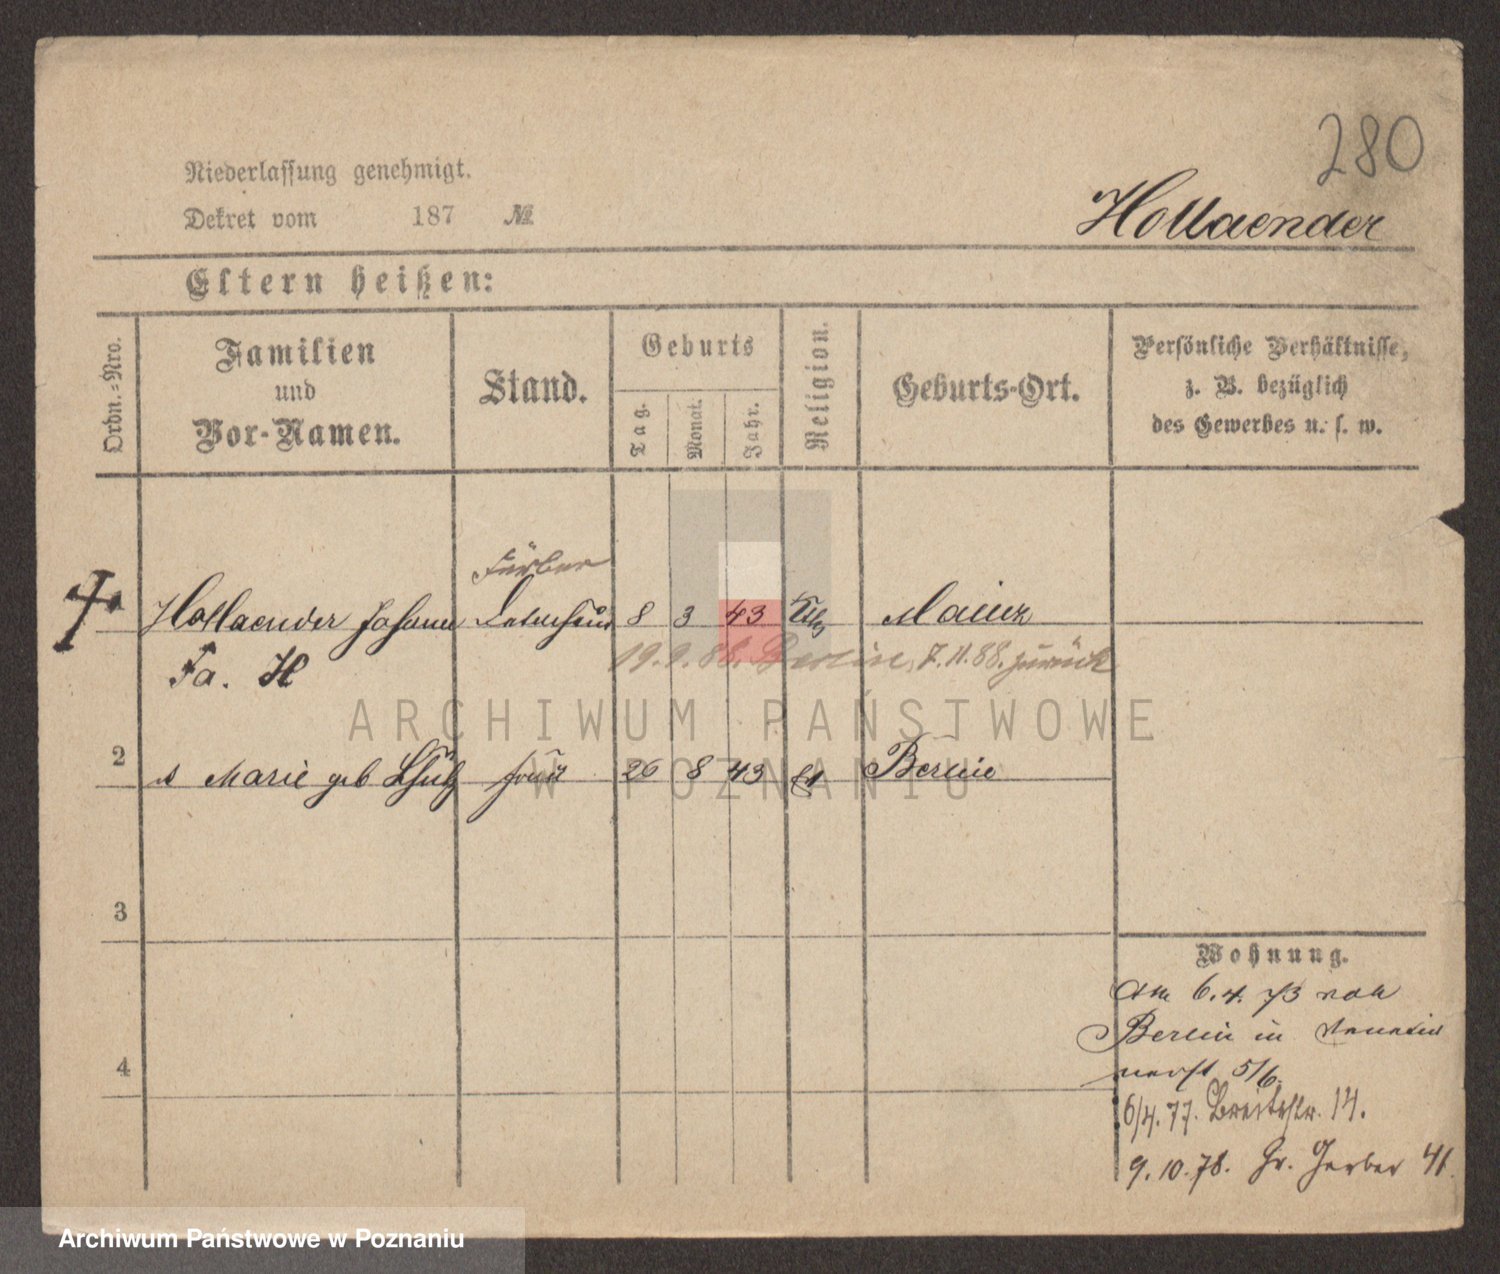 280
Niederlassung genehmigt.
Dekret vom 187 №
Hollaender
Eltern heißen:
Ordn.-Nro.
Familien und Vor-Namen.
Stand.
Geburts
Tag.
Monat.
Jahr.
Religion.
Geburts-Ort.
Persönliche Verhältnisse,
z. B. bezüglich
des Gewerbes u. s. w.
Färber
Hollaender Johann 8 3 43 Kth Mainz
19.9.88. Berlin, 7.11.88. zurück
Fa. H
ARCHIWUM PAŃSTWOWE
W POZNANIU
2 Marie geb Frau 26 8 43 Berlin
3
Wohnung.
Am 6.4.73 von
Berlin in
5/6.
4
6/4.77. Breitestr. 14.
9.10.78. Gr. Gerber 41.
Archiwum Państwowe w Poznaniu